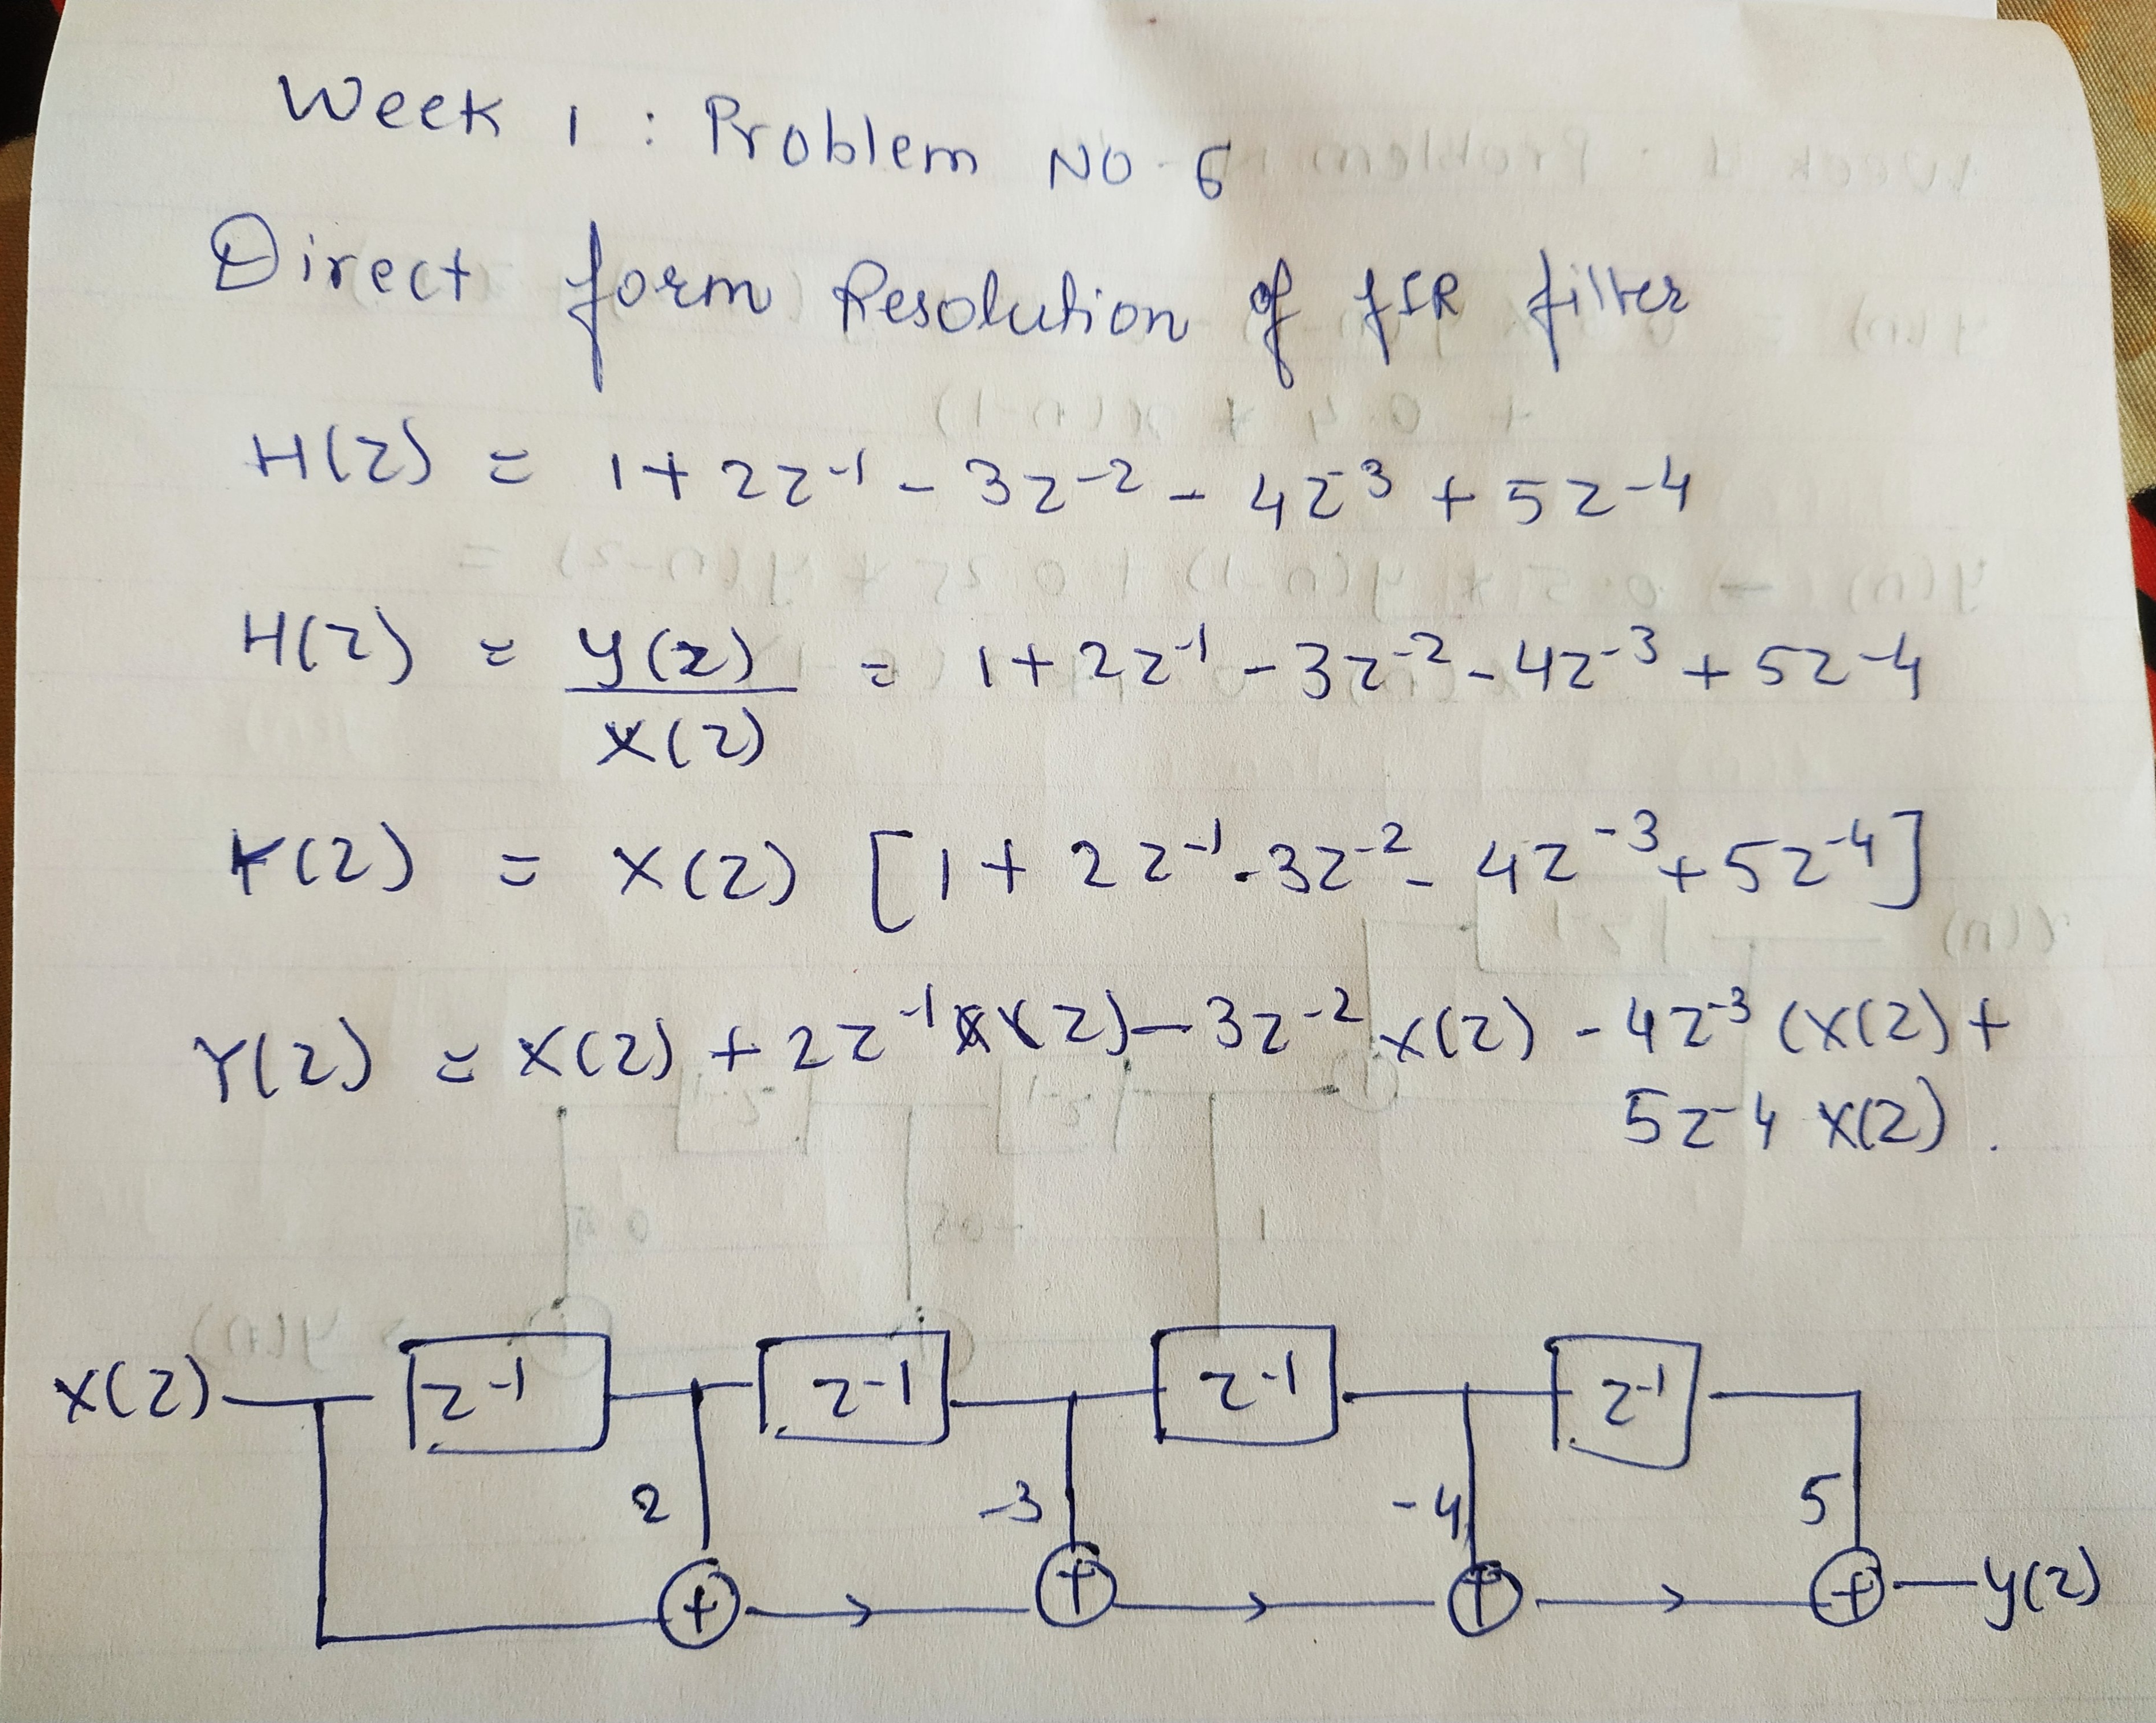 Week 1 : Problem No. 6
Direct form Resolution of fIR filter
H(z) = 1 + 2z⁻¹ - 3z⁻² - 4z⁻³ + 5z⁻⁴
H(z) = y(z)/x(z) = 1 + 2z⁻¹ - 3z⁻² - 4z⁻³ + 5z⁻⁴
Y(z) = x(z) [1 + 2z⁻¹ - 3z⁻² - 4z⁻³ + 5z⁻⁴]
Y(z) = x(z) + 2z⁻¹ x(z) - 3z⁻² x(z) - 4z⁻³ (x(z) +
5z⁻⁴ x(z).
x(z) z⁻¹ z⁻¹ z⁻¹ z⁻¹
2 -3 -4 5
+ + + + y(z)